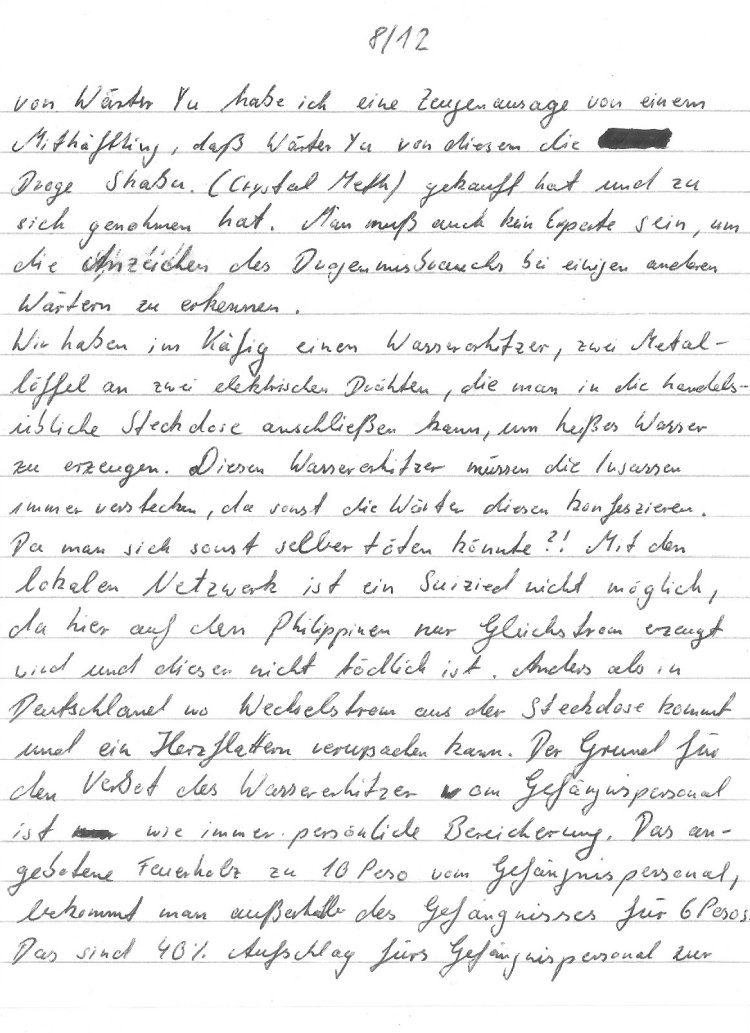 8/12
von Wärter Yu habe ich eine Zeugenausage von einem
Mithäftling, daß Wärter Yu von diesem die
Droge Shabu. (Crystal Meth) gekauft hat und zu
sich genohmen hat. Man muß auch kein Experte sein, um
die Anzeichen des Drogenmisbrauchs bei einigen anderen
Wärtern zu erkennen.
Wir haben im Käfig einen Wassererhitzer, zwei Metal-
löffel an zwei elektrischen Drähten, die man in die handels-
übliche Steckdose anschließen kann, um heißes Wasser
zu erzeugen. Diesen Wassererhitzer müssen die Insassen
immer verstecken, da sonst die Wärter diesen konfeszieren.
Da man sich sonst selber töten könnte?! Mit den
lokalen Netzwerk ist ein Suizied nicht möglich,
da hier auf den Philippinen nur Gleichstrom erzeugt
wird und dieser nicht tödlich ist. Anders als in
Deutschland wo Wechselstrom aus der Steckdose kommt
und ein Herzflattern verursachen kann. Der Grund für
den Verbot des Wassererhitzer vom Gefängnispersonal
ist wie immer persönliche Bereicherung. Das an-
gebotene Feuerholz zu 10 Peso vom Gefängnispersonal,
bekommt man außerhalb des Gefängnisses für 6 Pesos.
Das sind 40% Aufschlag fürs Gefängnispersonal zur